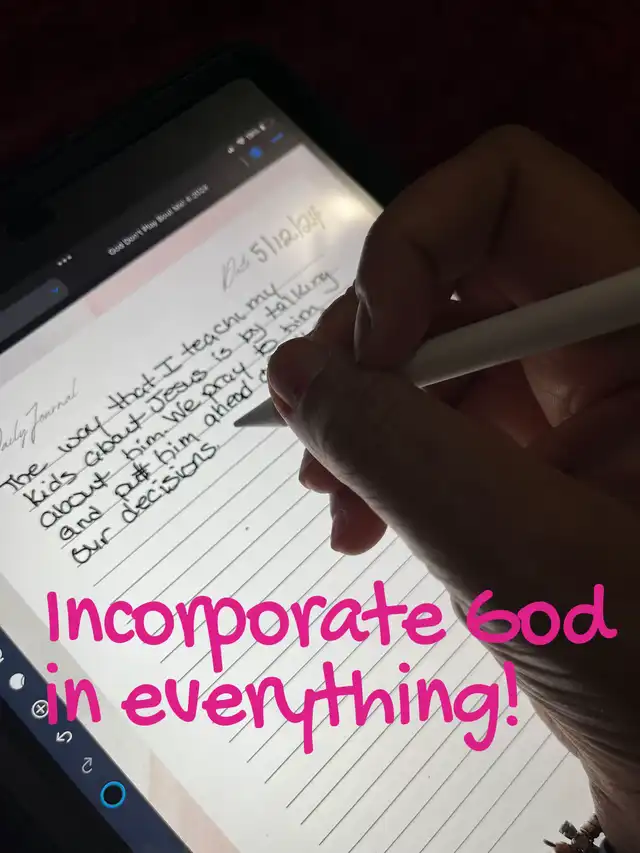 God Don't Play Soul Mar 4-2024
Date 5/12/24
Daily Journal
The way that I teach my
kids about Jesus is by talking
about him. We pray to him
and put him ahead
our decisions.
Incorporate God
in everything!